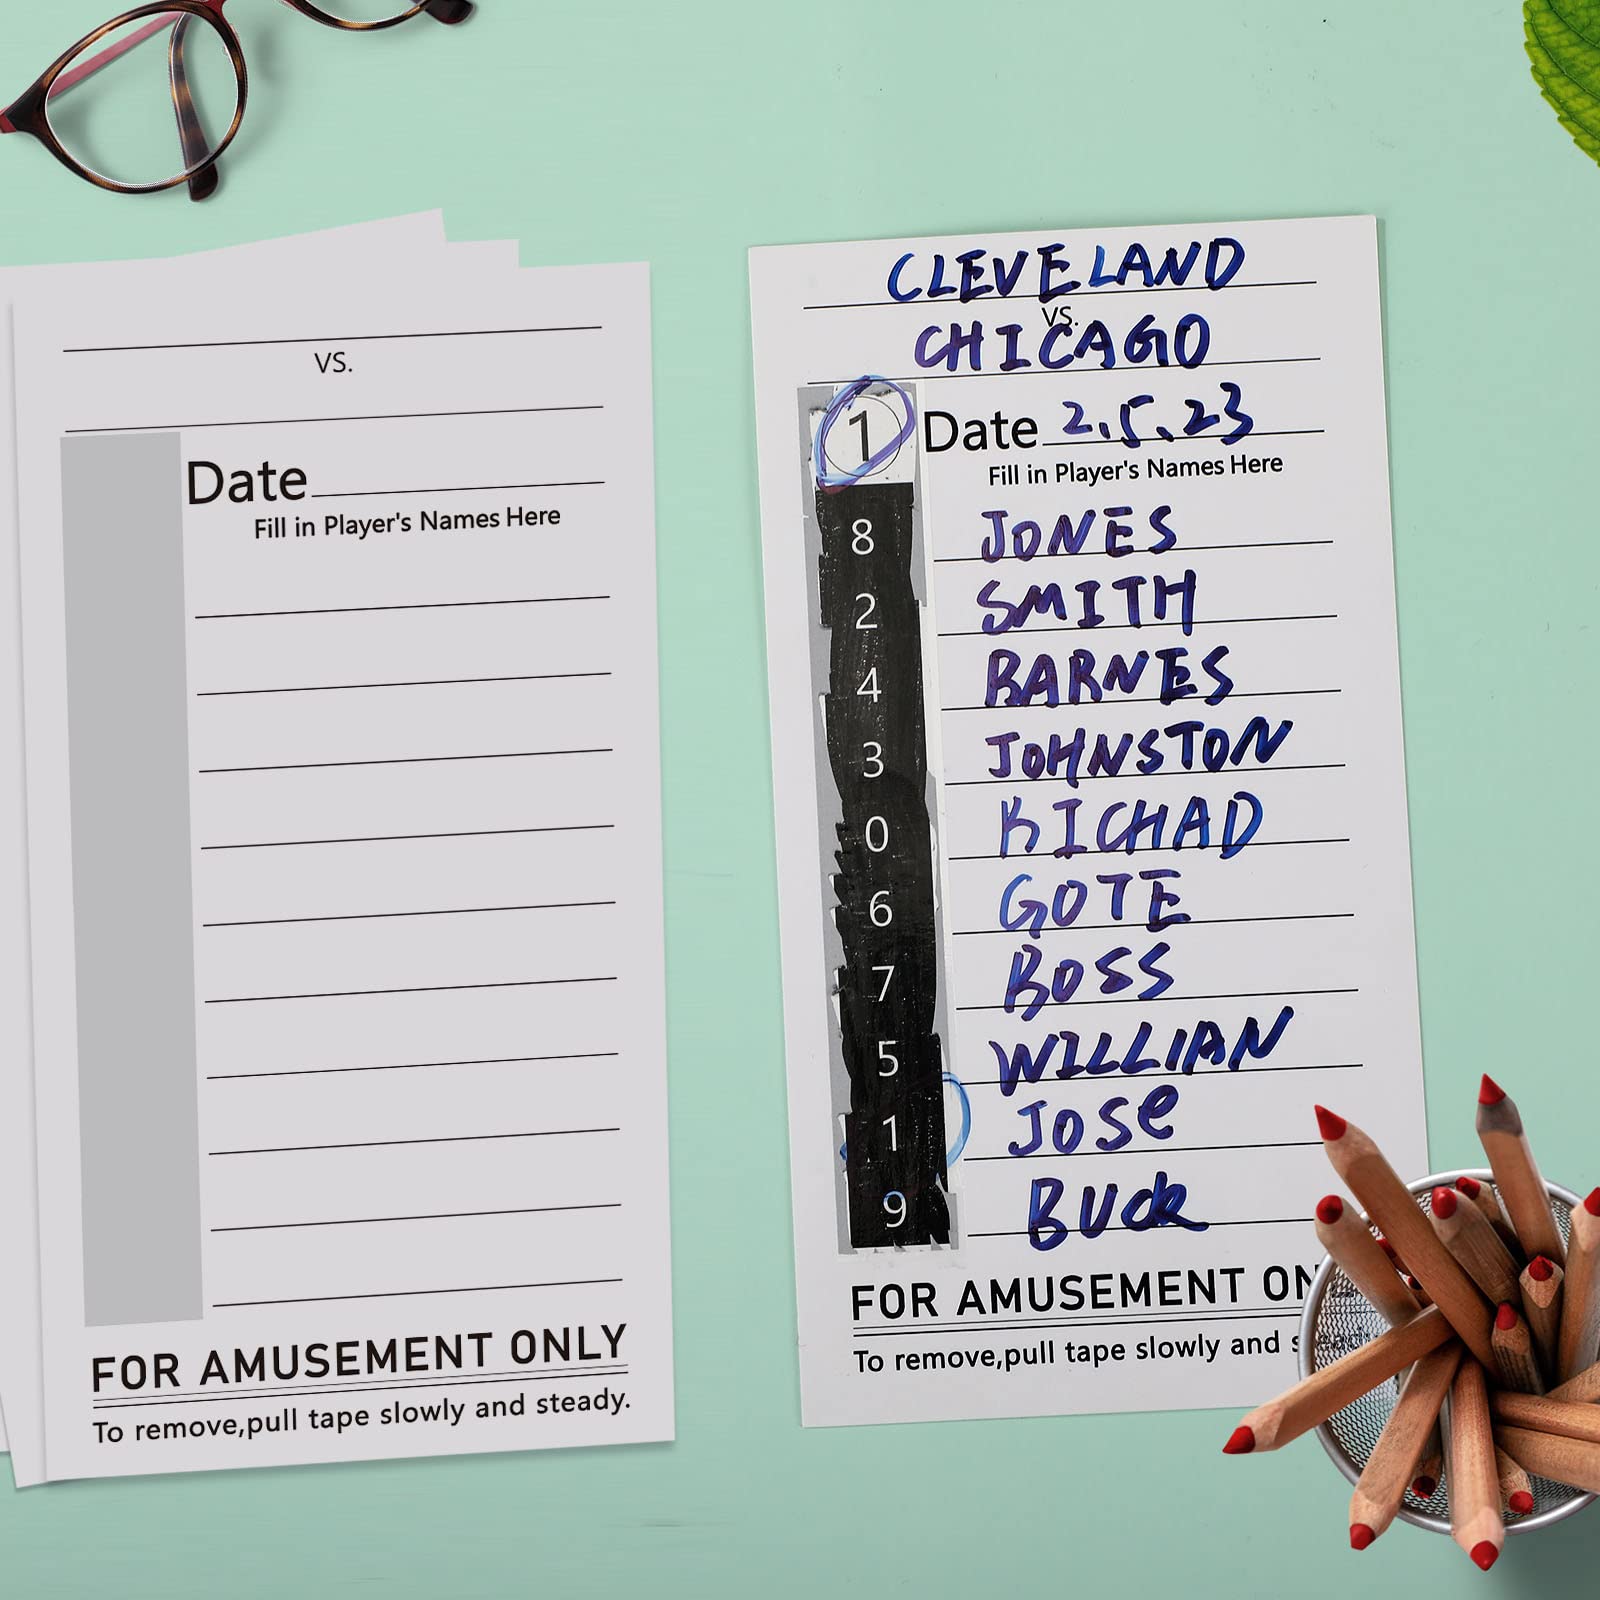 VS.
Date
Fill in Player's Names Here
FOR AMUSEMENT ONLY
To remove,pull tape slowly and steady.
CLEVELAND
VS.
CHICAGO
1 Date 2.5.23
Fill in Player's Names Here
8 JONES
2 SMITH
4 BARNES
3 JOHNSTON
0 RICHAD
6 GOTE
7 BOSS
5 WILLIAN
1 JOSe
9 BUck
FOR AMUSEMENT
To remove,pull tape slowly and